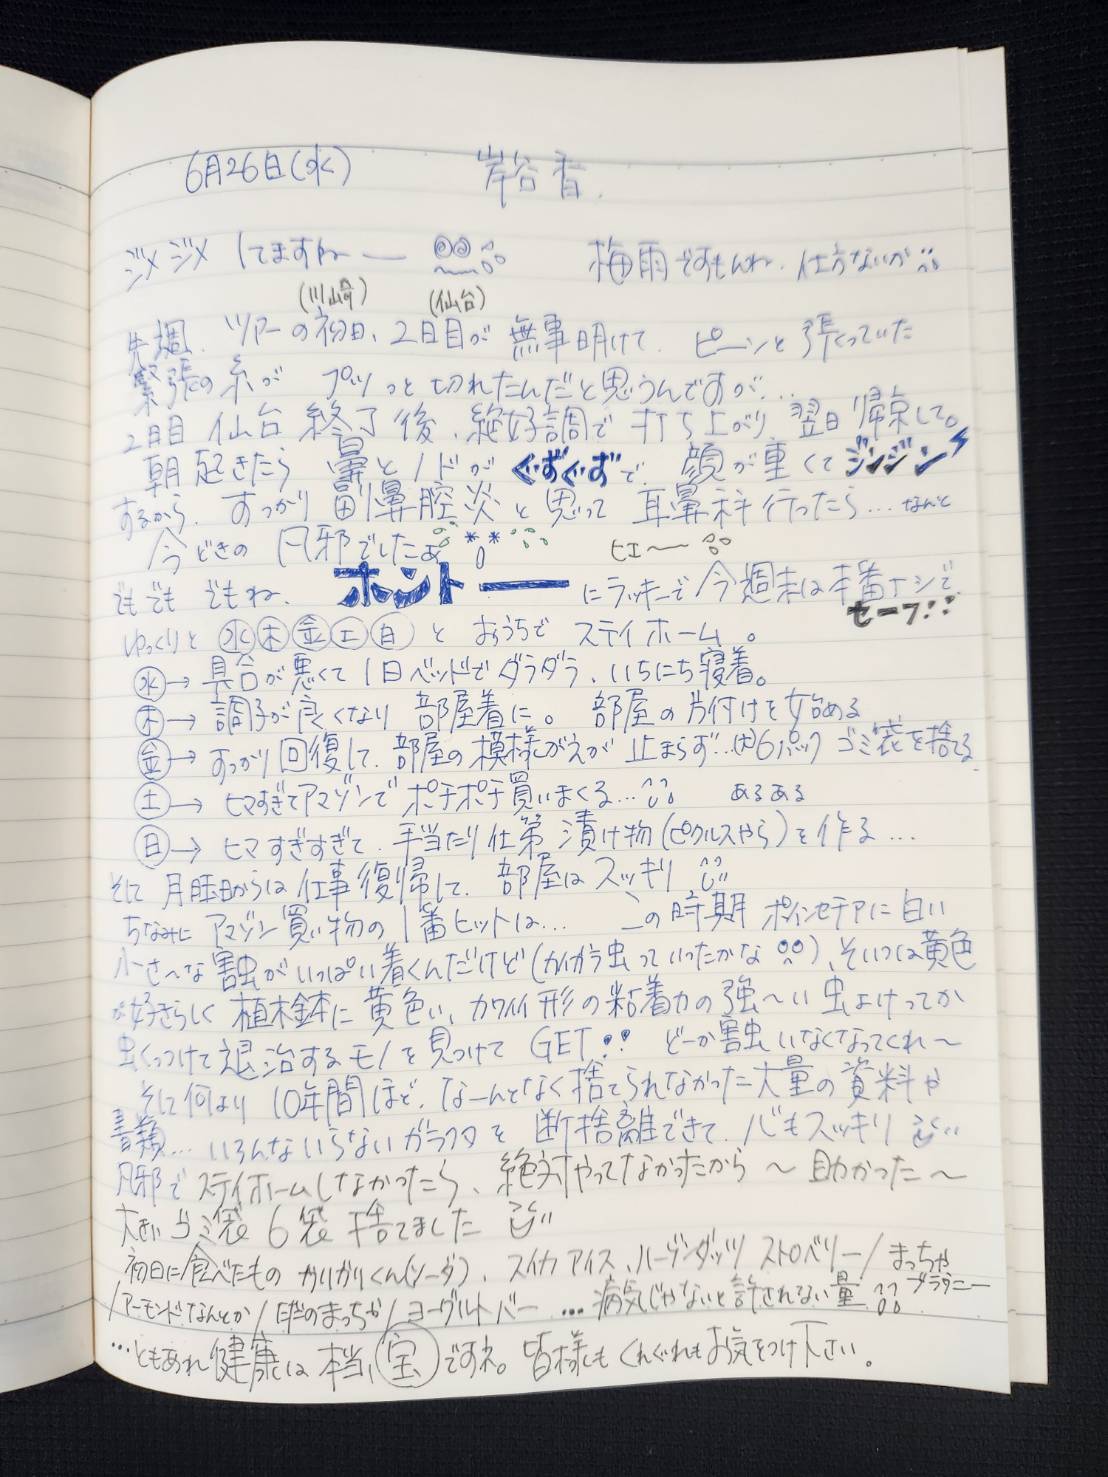 6月26日(水) 岸谷香.
ジメジメ してますねー 梅雨ですもんね. 仕方ないが
(川崎) (仙台)
先週. ツアーの初日、2日目が 無事明けて. ピーンと張っていた
緊張の糸が プツっと切れたんだと思うんですが...
2日目 仙台 終了後、絶好調で 打ち上がり、翌日帰京して。
朝起きたら 鼻とノドが ぐずぐずで. 顔が重くて ジンジン
するから. すっかり 副鼻腔炎と思って 耳鼻科行ったら... なんと
今どきの 風邪でしたぁ ヒエ〜
でもでも でもね. ホントー にラッキーで 今週末は本番ナシで
セーフ!!
ゆっくりと 水木金土日 と おうちで ステイホーム。
水→ 具合が悪くて 1日ベッドでダラダラ、いちにち寝着。
木→ 調子が良くなり 部屋着に。 部屋の片付けを始める
金→ すっかり回復して. 部屋の模様がえが 止まらず...(大)6パック ゴミ袋を捨てる
土→ ヒマすぎてアマゾンで ポチポチ買いまくる... あるある
日→ ヒマすぎすぎて. 手当たり仕第 漬け物(ピクルスやら)を作る...
そして 月曜日からは 仕事復帰して. 部屋はスッキリ
ちなみに アマゾン買い物の 1番ヒットは... この時期 ポインセチアに白い
小さ〜な 害虫がいっぱい着くんだけど(カイガラ虫っていったかな)、そいつは黄色
が好きらしく 植木鉢に 黄色い、カワイイ形の粘着力の強〜い 虫よけってか
虫くっつけて退治するモノを見つけて GET!! どーか害虫いなくなってくれ〜
そして何より 10年間ほど、なーんとなく捨てられなかった大量の資料や
書類... いろんないらないガラクタを 断捨離できて. 心もスッキリ
風邪で ステイホームしなかったら、絶対やってなかったから 〜 助かった〜
大きいゴミ袋 6袋 捨てました
初日に食べたもの ガリガリくん(ソーダ)、スイカアイス、ハーゲンダッツ ストロベリー/まっちゃ
/アーモンドなんとか/ /ヨーグルトバー ... 病気じゃないと許されない量
...ともあれ健康は 本当、宝ですネ。 皆様もくれぐれもお気をつけ下さい。